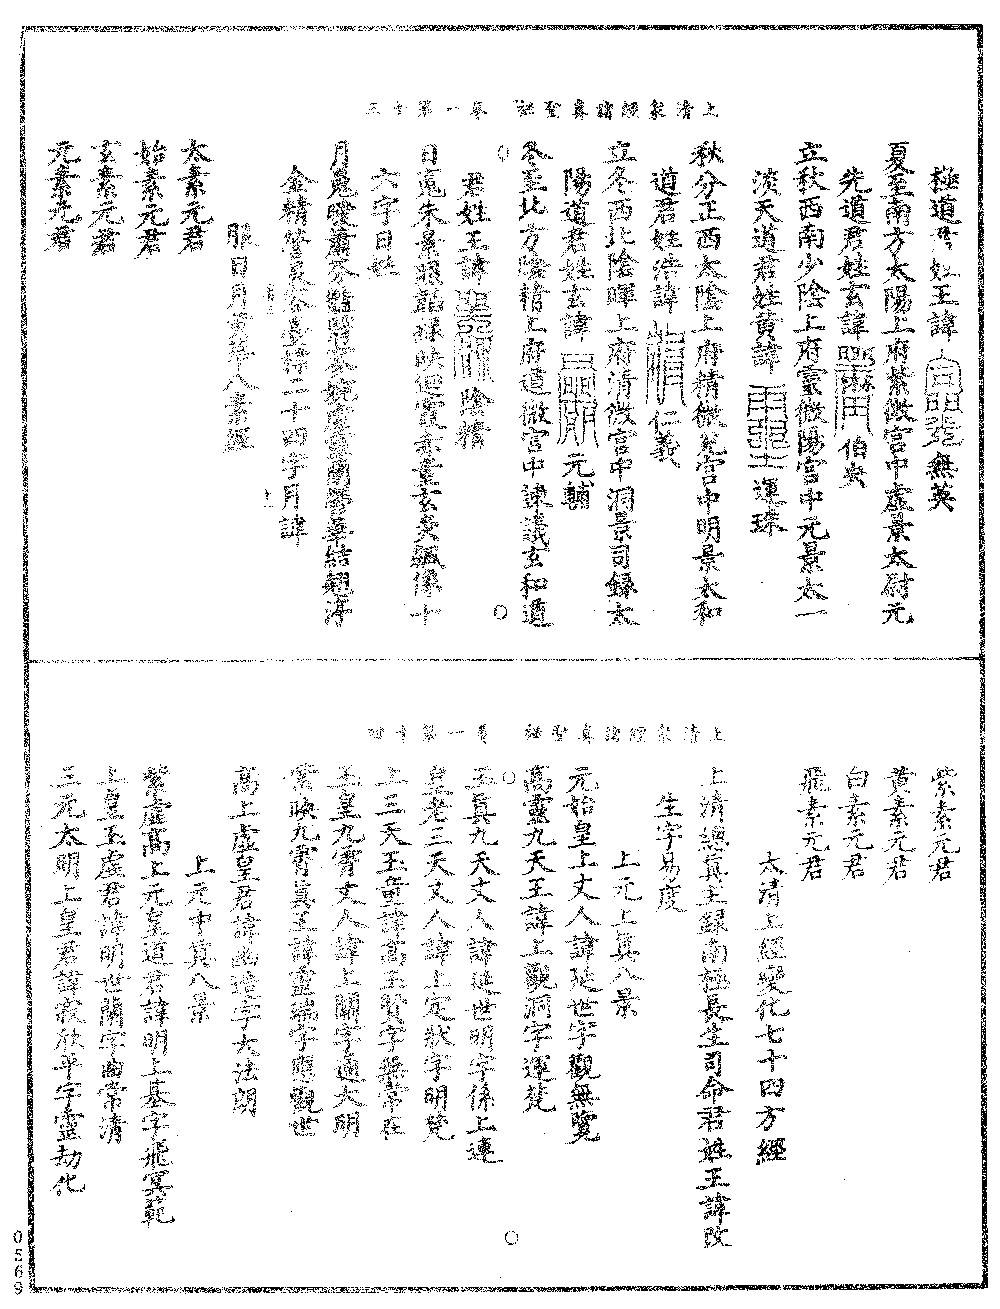 上清眾經諸真聖祕　卷一第十三
極道君姓王諱無英
夏至南方太陽上府紫微宮中虛景太尉元
先道君姓玄諱伯史
立秋西南少陰上府靈微陽宮中元景太一
淡天道君姓黃諱運珠
秋分正西太陰上府精微宮中明景太和
道君姓浩諱仁義
立冬西北陰暉上府清微宮中洞景司錄太
陽道君姓玄諱元輔
冬至北方陰精上府道微宮中諫議玄和道
君姓王諱陰精
日魂朱景照韜綠映迴霞赤童玄炎飆像十
六字日姓
月魄曖蕭芬豔翳寥婉虛靈蘭鬱華結翹淳
金精瑩炅容臺標二十四字月諱
服日月黃華八素經
太素元君
始素元君
玄素元君
元素元君
上清眾經諸真聖祕　卷一第十四
紫素元君
黃素元君
白素元君
飛素元君
太清上經變化七十四方經
上清總真主錄南極長生司命君姓王諱改
生字易度
上元上真八景
元始皇上丈人諱延世字觀無覽
高靈九天王諱上觀洞字運梵
玉真九天丈人諱延世明字係上連
皇老三天丈人諱上定狀字明梵
上三天玉童諱高玉賢字無常在
玉皇九霄丈人諱上開字通大明
紫映九霄真王諱靈端字應觀世
高上虛皇君諱幽造字大法朗
上元中真八景
紫虛高上元皇道君諱明上基字飛冥範
上皇玉虛君諱明世蘭字曲常清
三元太明上皇君諱寂欣平字靈劫化
0569